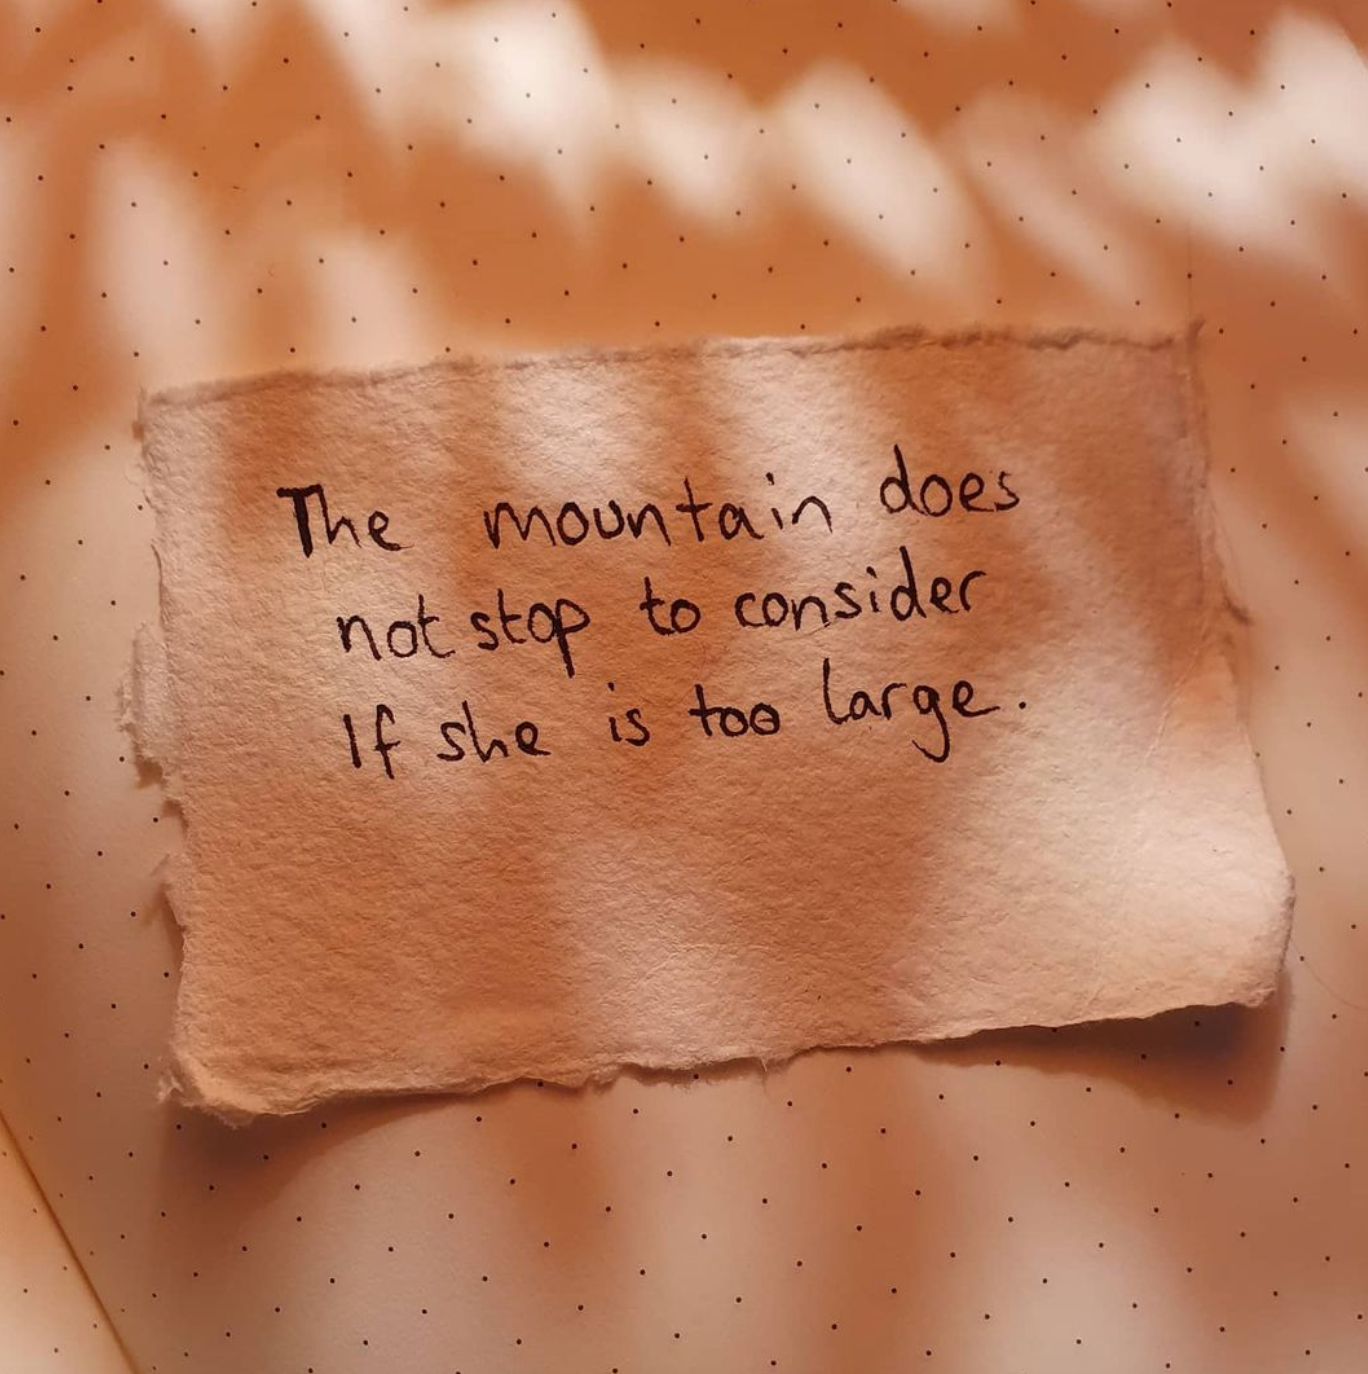 The mountain does
not stop to consider
If she is too large.